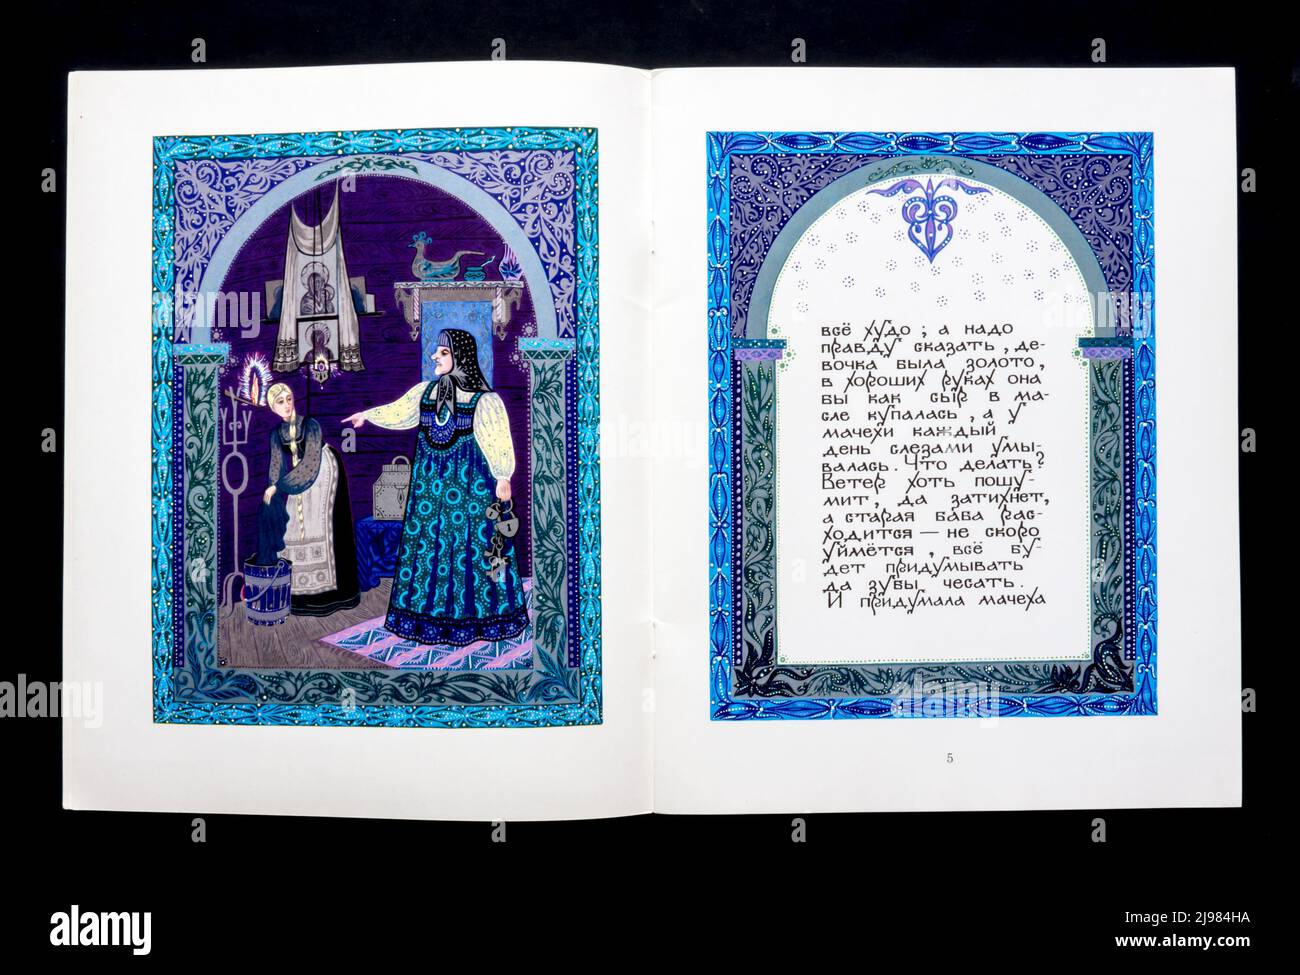 всё худо; а надо
правду сказать, де-
вочка была золото,
в хороших руках она
бы как сыр в ма-
сле купалась, а у
мачехи каждый
день слезами умы-
валась. Что делать?
Ветер хоть пошу-
мит, да затихнет,
а старая баба рас-
ходится — не скоро
уймётся, всё бу-
дет придумывать
да зубы чесать.
И придумала мачеха
5
alamy
Image ID: 2J984HA
www.alamy.com